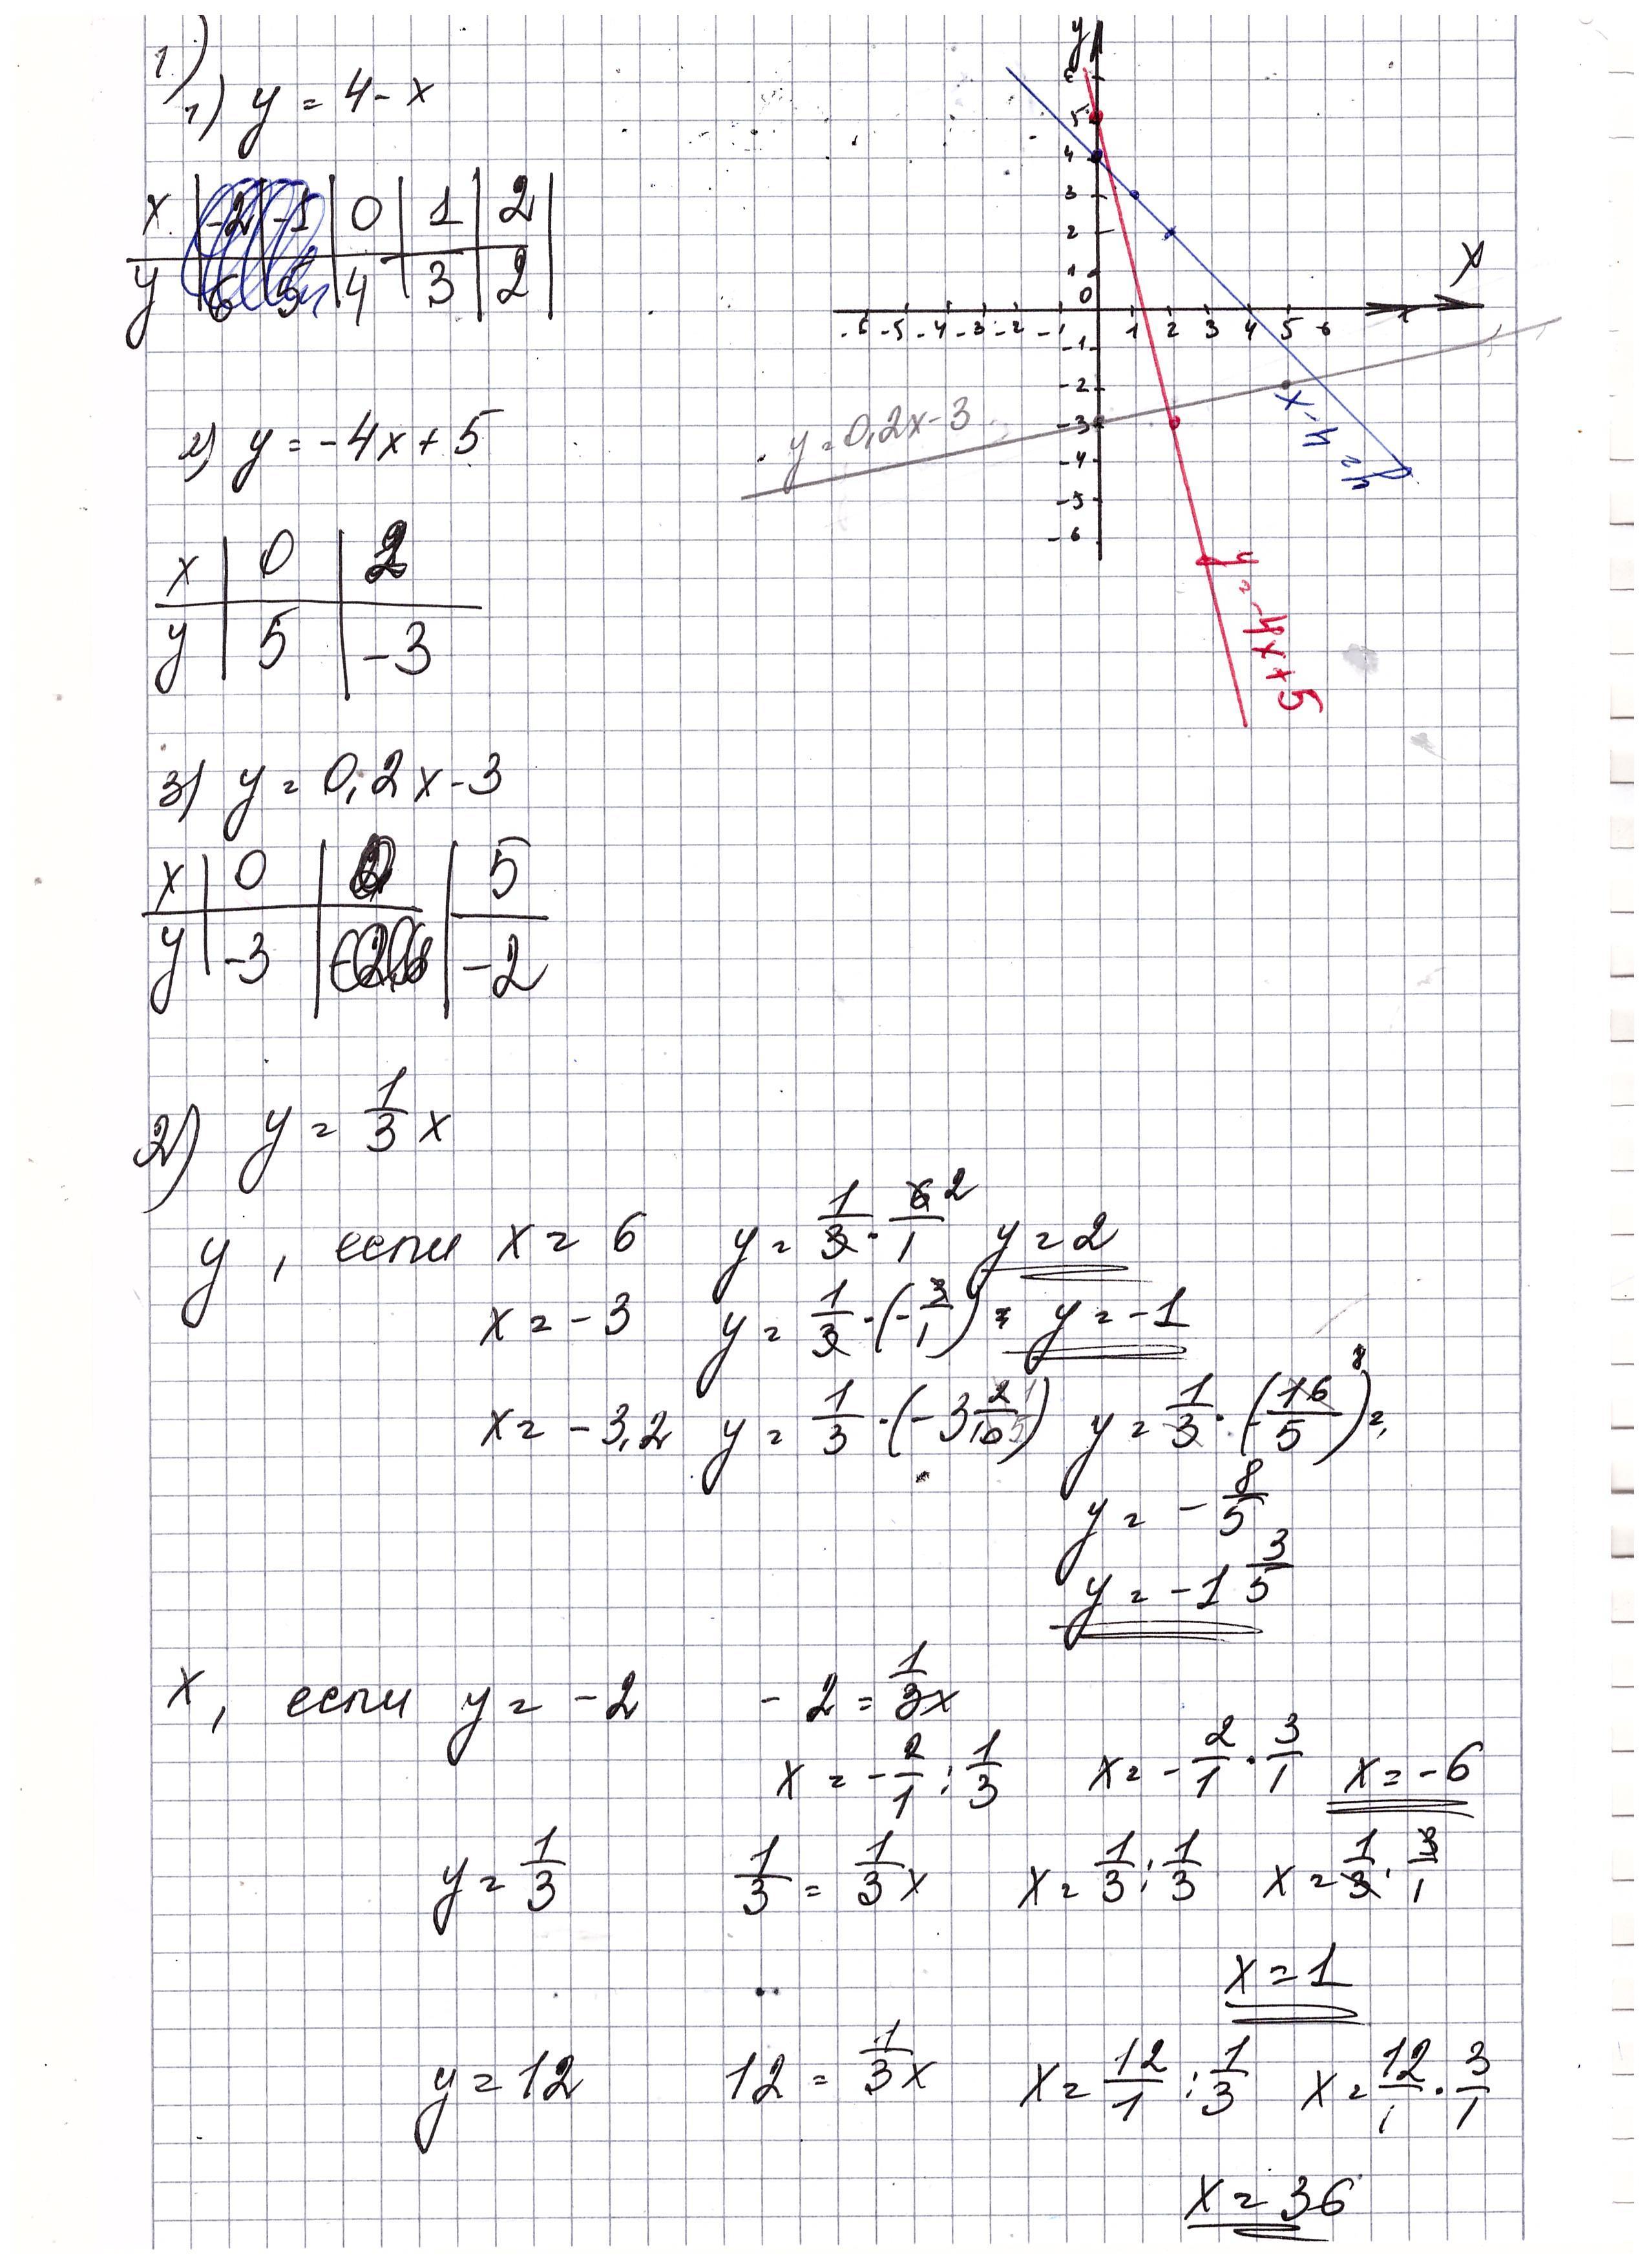 1)
1) y = 4 - x
x | -2 | -1 | 0 | 1 | 2
y | 6 | 5 | 4 | 3 | 2
2) y = -4x + 5
x | 0 | 2
y | 5 | -3
3) y = 0,2x - 3
x | 0 | 2 | 5
y | -3 | -2,6 | -2
y
6
5
4
3
2
1
0
-6 -5 -4 -3 -2 -1 1 2 3 4 5 6 x
-1
-2
-3
-4
-5
-6
y = 0,2x - 3
y = 4 - x
y = -4x + 5
2) y = 1/3 x
y, если x = 6 y = 1/3 · 6/1 2 y = 2
x = -3 y = 1/3 · (-3/1) = y = -1
x = -3,2 y = 1/3 · (-3 2/10) 1 5 y = 1/3 · (-16/5) 8 =
y = -8/5
y = -1 3/5
x, если y = -2 -2 = 1/3 x
x = -2/1 : 1/3 x = -2/1 · 3/1 x = -6
y = 1/3 1/3 = 1/3 x x = 1/3 : 1/3 x = 1/3 · 3/1
x = 1
y = 12 12 = 1/3 x x = 12/1 : 1/3 x = 12/1 · 3/1
x = 36